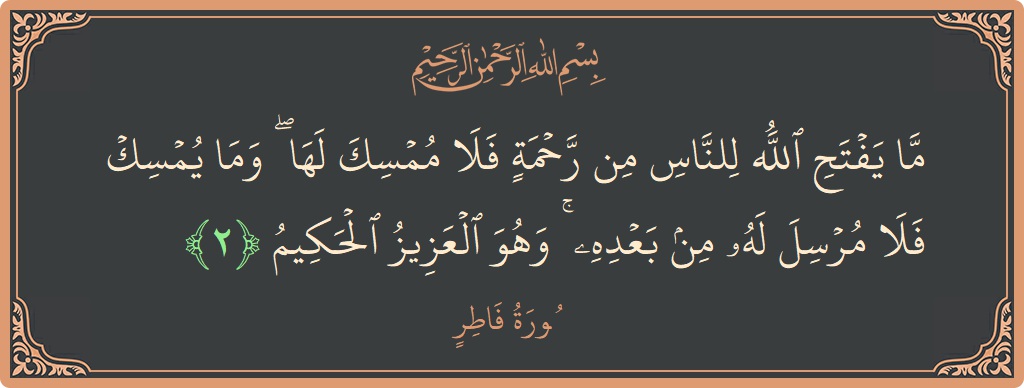 بِسْمِ اللهِ الرَّحْمٰنِ الرَّحِيْمِ
مَّا يَفْتَحِ ٱللَّهُ لِلنَّاسِ مِن رَّحْمَةٍ فَلَا مُمْسِكَ لَهَا ۖ وَمَا يُمْسِكْ
فَلَا مُرْسِلَ لَهُۥ مِنۢ بَعْدِهِۦ ۚ وَهُوَ ٱلْعَزِيزُ ٱلْحَكِيمُ ﴿٢﴾
سُورَةُ فَاطِرٍ